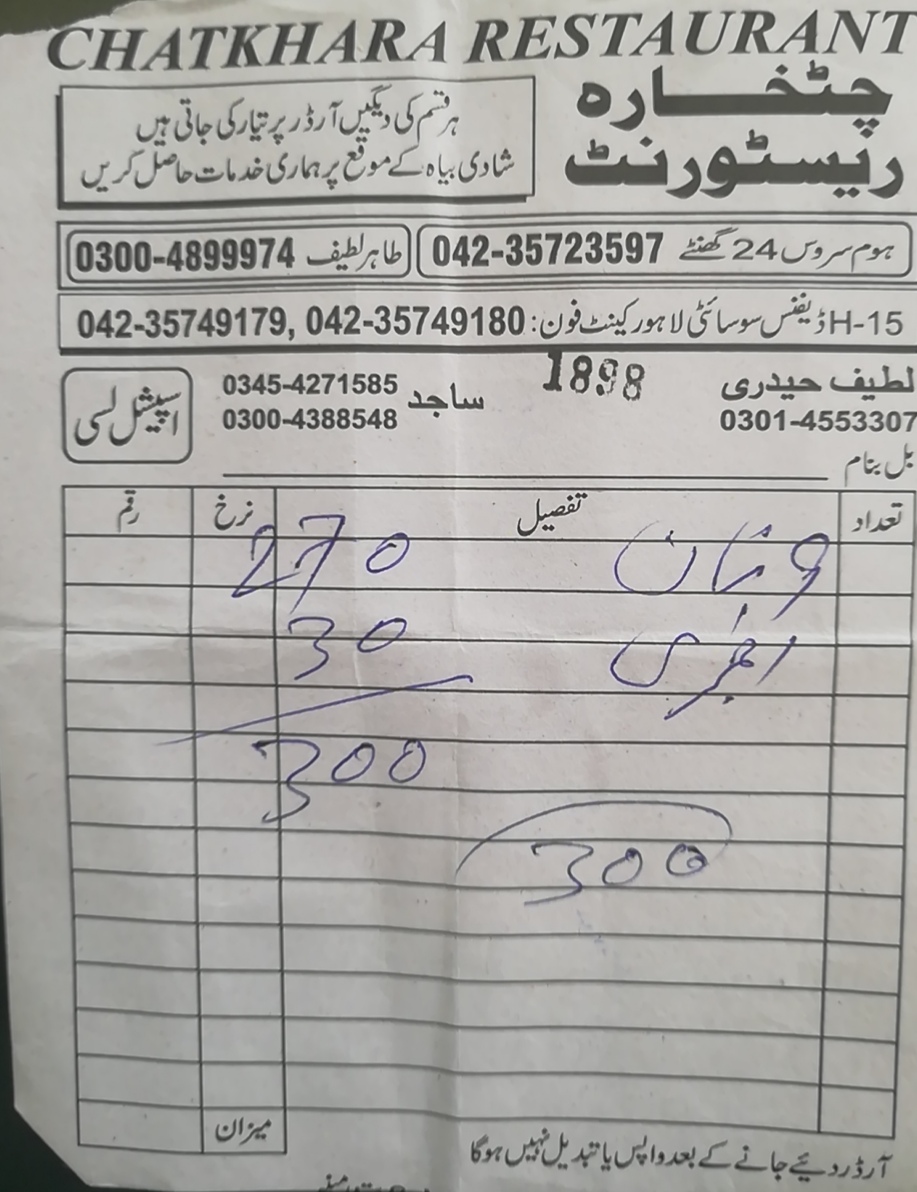 CHATKHARA RESTAURANT
چٹخارہ
ریسٹورنٹ
ہر قسم کی دیگیں آرڈر پر تیار کی جاتی ہیں
شادی بیاہ کے موقع پر ہماری خدمات حاصل کریں
ہوم سروس 24 گھنٹے 042-35723597
طاہر لطیف 0300-4899974
H-15 ڈیفنس سوسائٹی لاہور کینٹ فون: 042-35749180 ,042-35749179
لطیف حیدری
0301-4553307
1898
ساجد
0345-4271585
0300-4388548
اسپیشل لسی
بل بنام
تعداد تفصیل نرخ رقم
270
30
300
300
میزان
آرڈر دیئے جانے کے بعد واپس یا تبدیل نہیں ہوگا